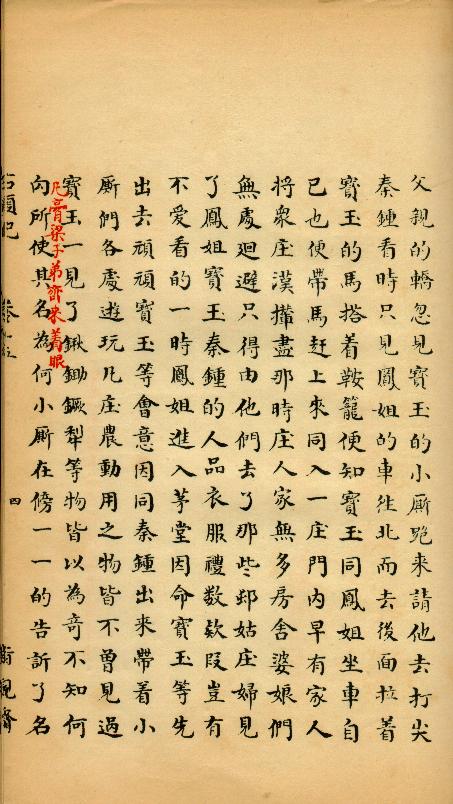 父親的轎忽見寶玉的小厮跑来請他去打尖
秦鍾看時只見鳳姐的車徃北而去後面拉着
寳玉的馬搭着鞍籠便知寳玉同鳳姐坐車自
已也便帶馬赶上來同入一庄門内早有家人
将衆庄漢攆盡那時庄人家無多房舍婆娘們
無處廻避只得由他們去了那些邨姑庄婦見
了鳳姐寶玉秦鍾的人品衣服禮数欵叚豈有
不爱看的一時鳳姐進入茅堂因命寶玉等先
出去頑頑寶玉等會意因同秦鍾出来帶着小
厮們各處逰玩凡庄農動用之物皆不曽見過
寶玉一見了鍬鋤鐝犁等物皆以為竒不知何
凡膏粱子弟齊来着眼
向所使其名為何小厮在傍一一的告訴了名
石頭記
卷
四
脂硯齋